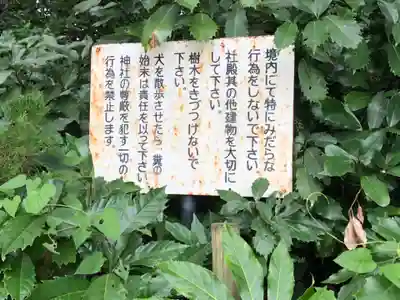 境内にて特にみだらな
行為をしないで下さい
社殿其の他建物を大切に
して下さい。
樹木をきづつけないで
下さい。
犬を散歩させたら 糞の
始末は責任を以って下さい
神社の尊厳を犯す一切の
行為を禁止します。